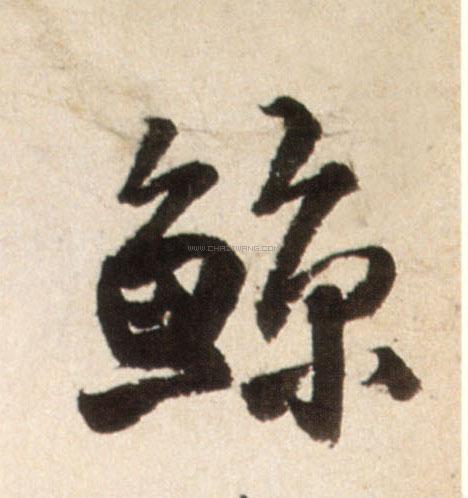 鯨
WWW.CHAZIWANG.COM